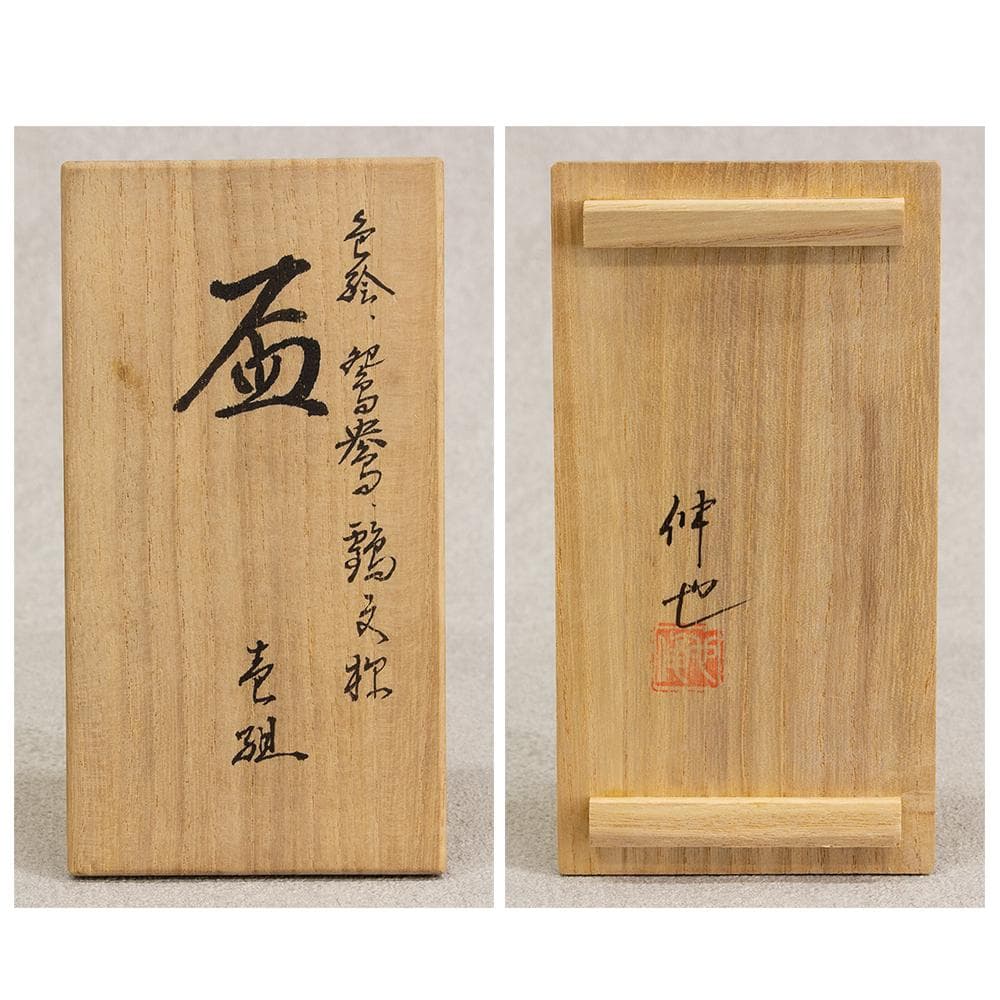 色絵、鴛鴦、鶴文様
盃
壱組
伸也